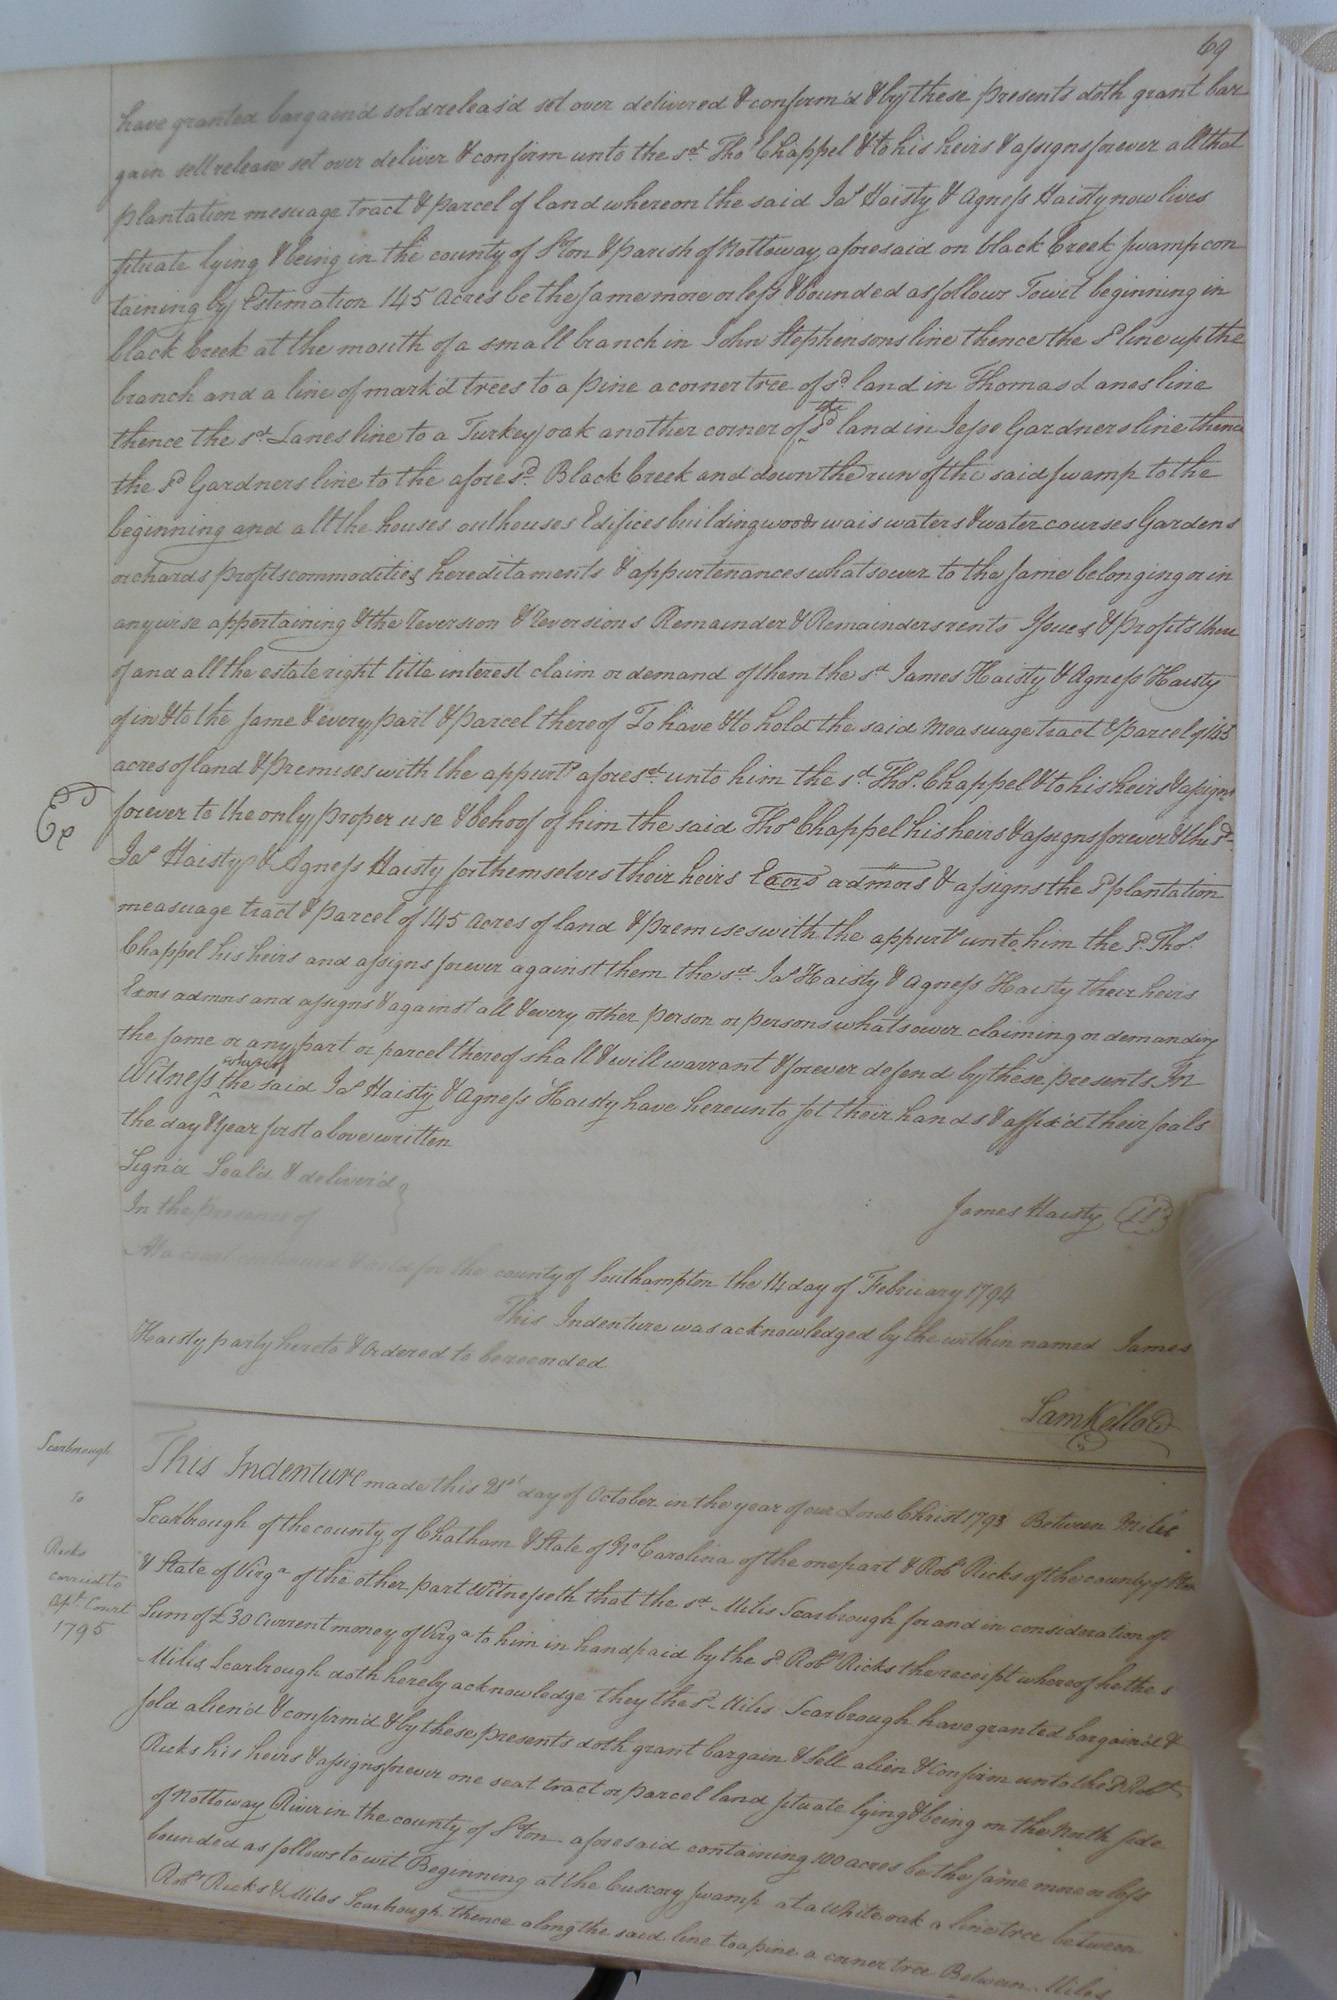 69
have granted bargain'd sold releas'd set over delivered & confirm'd & by these presents doth grant bar
gain sell release set over deliver & confirm unto the sd. Tho Chappel & to his heirs & assigns forever all that
plantation mesuage tract & parcel of land whereon the said Jas Haisty & Agness Haisty now lives
situate lying & being in the county of Ston & parish of Nottoway aforesaid on black Creek swamp con
taining by Estimation 145 Acres be the same more or less & bounded as follows Towit beginning in
black Creek at the mouth of a small branch in John Stephensons line thence the sd line up the
branch and a line of mark'd trees to a pine a corner tree of sd. land in Thomas Lanes line
thence the sd. Lanes line to a Turkey oak another corner of the sd land in Jesse Gardners line thence
the sd Gardners line to the afore sd. Black Creek and down the run of the said swamp to the
beginning and all the houses outhouses Edifices building woods wais waters & water courses Gardens
orchards profits commodities hereditaments & appurtenances whatsower to the same belonging or in
anywise appertaining & the Reversion & Reversions Remainder & Remainders rents Issues & profits there
of and all the estate right title interest claim or demand of them the sd James Haisty & Agness Haisty
of in & to the same & every part & parcel thereof To have & to hold the said measuage tract & parcel of 145
acres of land & premises with the appurts afore sd. unto him the sd. Thos. Chappel & to his heirs & assigns
Ex
forever to the only proper use & behoof of him the said Thos Chappel his heirs & assigns forever & the sd.
Jas Haisty & Agness Haisty for themselves their heirs Exors admors & assigns the sd plantation
measuage tract & parcel of 145 Acres of land & premises with the appurts unto him the sd. Thos.
Chappel his heirs and assigns forever against them the sd. Jas Haisty & Agness Haisty their heirs
Exors admors and assigns & against all & every other person or persons whatsower claiming or demanding
the same or any part or parcel thereof shall & will warrant & forever defend by these presents In
Witness whereof the said Jas Haisty & Agness Haisty have hereunto set their hands & affix'd their seals
the day & year first above written
Sign'd Seal'd & deliver'd
In the presence of
James Haisty LS
At a court continued & held for the county of Southampton the 14 day of February 1794
This Indenture was acknowledged by the within named James
Haisty party hereto & Ordered to be recorded
Sam Kello C
Scarbrough
to
Ricks
carried to
Apl. Court
1795
This Indenture made this 21st day of October in the year of our Lord Christ 1793 Between Miles
Scarbrough of the county of Chatham & State of No Carolina of the one part & Robt Ricks of the county of Ston
& State of Virga of the other part Witnesseth that the sd. Miles Scarbrough for and in consideration of
Sum of £30 Current money of Virga to him in hand paid by the sd. Robt Ricks the receipt whereof he the s
Miles Scarbrough doth hereby acknowledge they the sd. Miles Scarbrough have granted bargain'd &
sold alien'd & confirm'd & by these presents doth grant bargain & sell alien & Confirm unto the sd Robt
Ricks his heirs & assigns forever one seat tract or parcel land situate lying & being on the North side
of Nottoway River in the county of Ston aforesaid containing 100 acres be the same more or less
bounded as follows to wit Beginning at the swamp at a White oak a line tree between
Robt Ricks & Miles Scarbrough thence along the said line to a pine a corner tree Between Miles